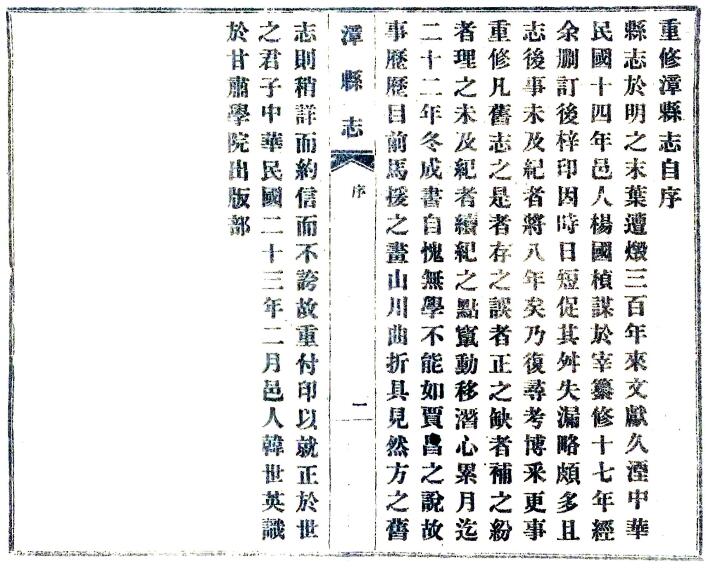 重修漳縣志自序
縣志於明之末葉遭燬三百年來文獻久湮中華
民國十四年邑人楊國楨謀於宰纂修十七年經
余刪訂後梓印因時日短促其舛失漏略頗多且
志後事未及紀者將八年矣乃復尋考博釆更事
重修凡舊志之是者存之誤者正之缺者補之紛
者理之未及紀者續紀之點竄動移潛心累月迄
二十二年冬成書自愧無學不能如賈昌之說故
事歷歷目前馬援之畫山川曲折具見然方之舊
漳縣志
序
二
志則稍詳而約信而不誇故重付印以就正於世
之君子中華民國二十三年二月邑人韓世英識
於甘肅學院出版部